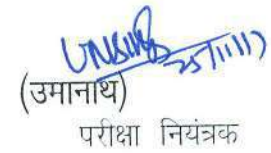 25/11/17
(उमानाथ)
परीक्षा नियंत्रक